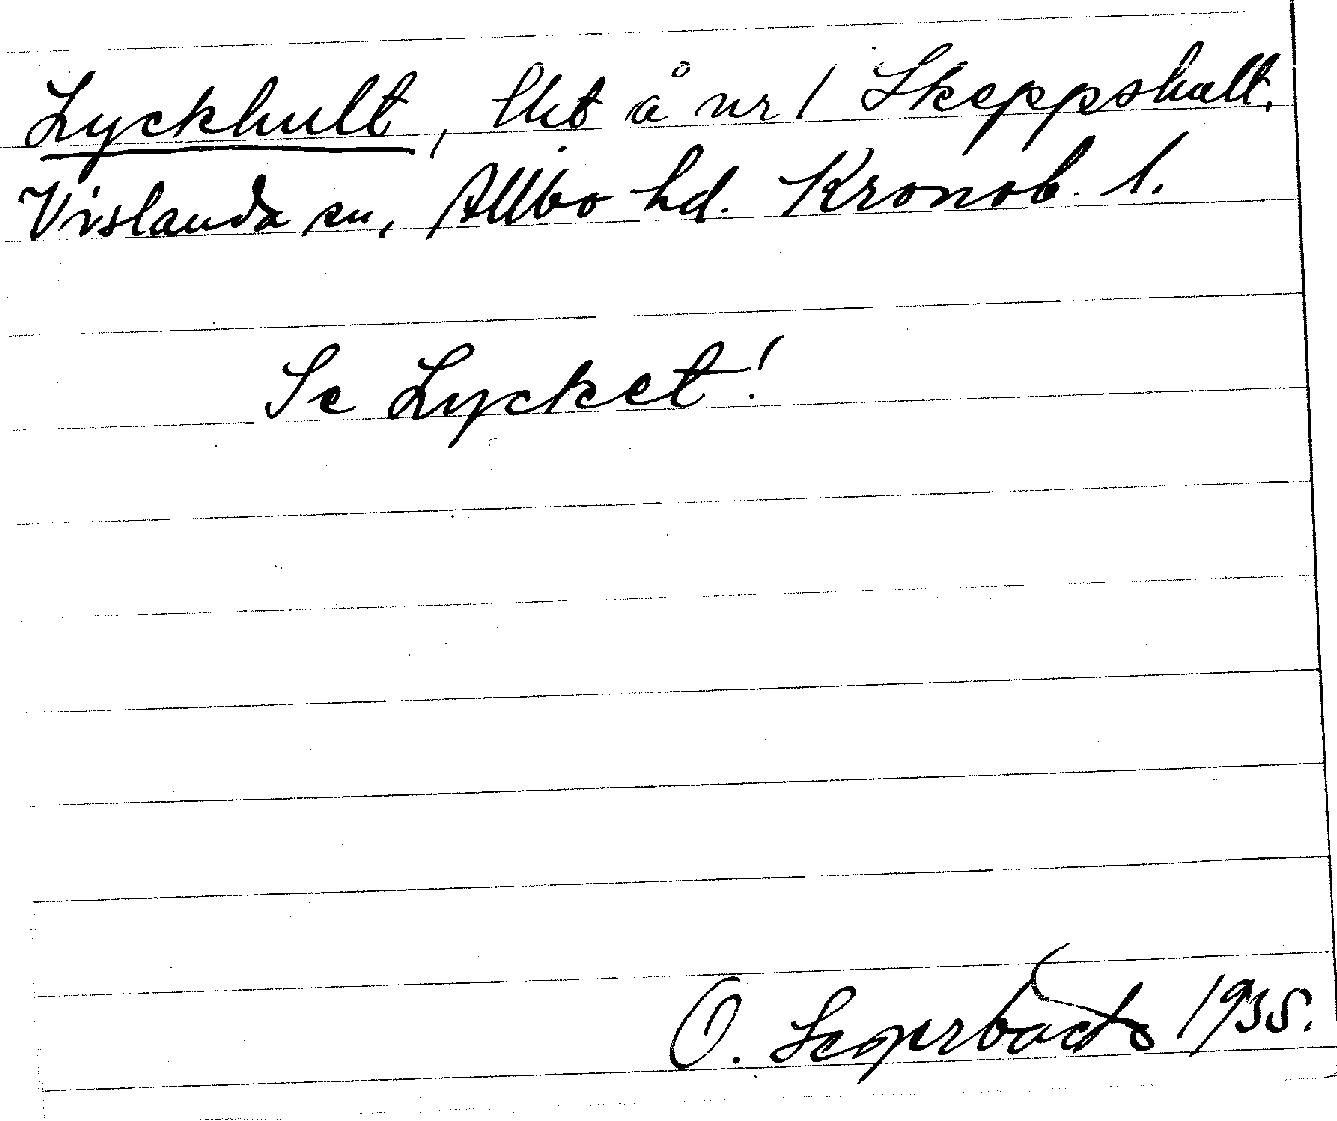 Lyckhult, lht å nr 1 Skeppshult.
Vislanda sn, Allbo hd. Kronob. l.
Se Lycket!
O. 1935.